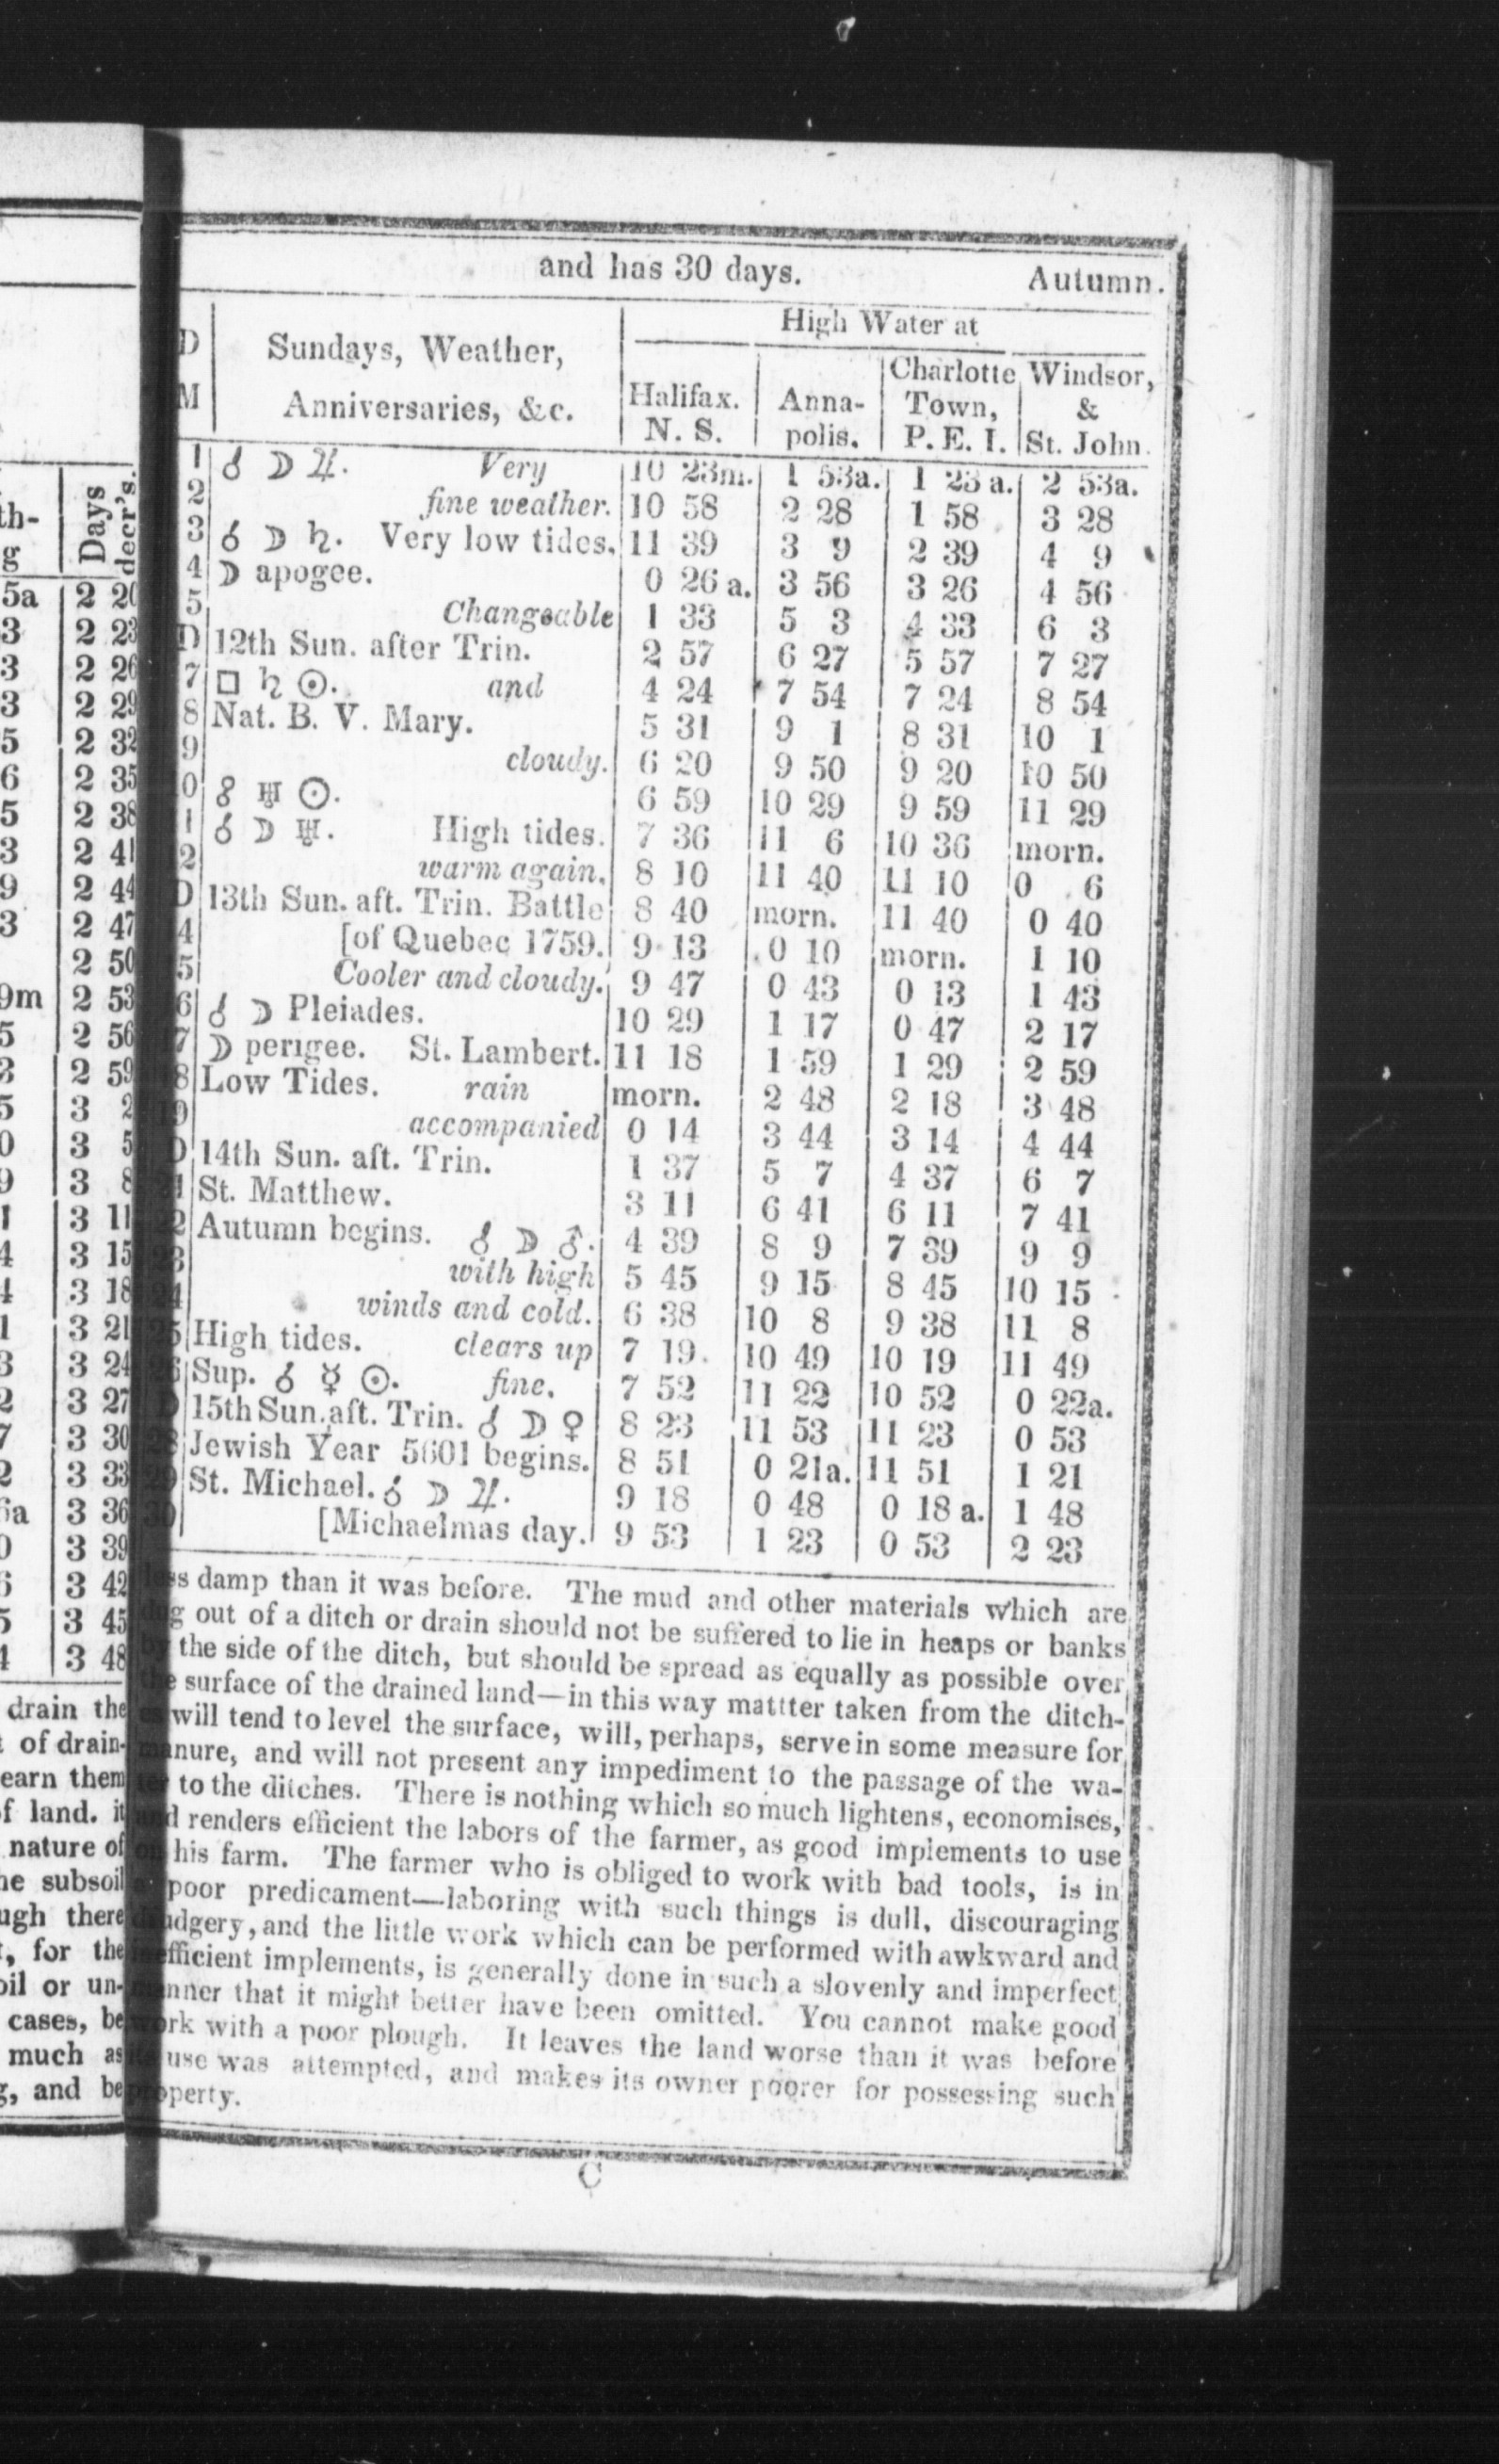 and has 30 days. Autumn.
D M Sundays, Weather, Anniversaries, &c. High Water at
Halifax. N. S. Anna-polis. Charlotte Town, P. E. I. Windsor, & St. John.
1 ☌ ☽ ♃. Very 10 23m. 1 53a. 1 23 a. 2 53a.
2 fine weather. 10 58 2 28 1 58 3 28
3 ☌ ☽ ♄. Very low tides. 11 39 3 9 2 39 4 9
4 ☽ apogee. 0 26 a. 3 56 3 26 4 56
5 Changeable 1 33 5 3 4 33 6 3
D 12th Sun. after Trin. 2 57 6 27 5 57 7 27
7 □ ♄ ☉. and 4 24 7 54 7 24 8 54
8 Nat. B. V. Mary. 5 31 9 1 8 31 10 1
9 cloudy. 6 20 9 50 9 20 10 50
0 ☍ ♅ ☉. 6 59 10 29 9 59 11 29
1 ☌ ☽ ♅. High tides. 7 36 11 6 10 36 morn.
2 warm again. 8 10 11 40 11 10 0 6
D 13th Sun. aft. Trin. Battle 8 40 morn. 11 40 0 40
4 [of Quebec 1759. 9 13 0 10 morn. 1 10
5 Cooler and cloudy. 9 47 0 43 0 13 1 43
6 ☌ ☽ Pleiades. 10 29 1 17 0 47 2 17
7 ☽ perigee. St. Lambert. 11 18 1 59 1 29 2 59
18 Low Tides. rain morn. 2 48 2 18 3 48
19 accompanied 0 14 3 44 3 14 4 44
D 14th Sun. aft. Trin. 1 37 5 7 4 37 6 7
21 St. Matthew. 3 11 6 41 6 11 7 41
22 Autumn begins. ☌ ☽ ♂. 4 39 8 9 7 39 9 9
23 with high 5 45 9 15 8 45 10 15
24 winds and cold. 6 38 10 8 9 38 11 8
25 High tides. clears up 7 19 10 49 10 19 11 49
26 Sup. ☌ ☿ ☉. fine. 7 52 11 22 10 52 0 22a.
D 15th Sun. aft. Trin. ☌ ☽ ♀ 8 23 11 53 11 23 0 53
28 Jewish Year 5601 begins. 8 51 0 21a. 11 51 1 21
29 St. Michael. ☌ ☽ ♃. 9 18 0 48 0 18 a. 1 48
30 [Michaelmas day. 9 53 1 23 0 53 2 23
less damp than it was before. The mud and other materials which are
dug out of a ditch or drain should not be suffered to lie in heaps or banks
by the side of the ditch, but should be spread as equally as possible over
the surface of the drained land—in this way mattter taken from the ditch-
es will tend to level the surface, will, perhaps, serve in some measure for
manure, and will not present any impediment to the passage of the wa-
ter to the ditches. There is nothing which so much lightens, economises,
and renders efficient the labors of the farmer, as good implements to use
on his farm. The farmer who is obliged to work with bad tools, is in
a poor predicament—laboring with such things is dull, discouraging
drudgery, and the little work which can be performed with awkward and
inefficient implements, is generally done in such a slovenly and imperfect
manner that it might better have been omitted. You cannot make good
work with a poor plough. It leaves the land worse than it was before
its use was attempted, and makes its owner poorer for possessing such
property.
C
th-
g
Days decr's.
5a 2 20
3 2 23
3 2 26
3 2 29
5 2 32
6 2 35
5 2 38
3 2 41
9 2 44
3 2 47
2 50
9m 2 53
5 2 56
3 2 59
5 3 2
0 3 5
9 3 8
1 3 11
4 3 15
4 3 18
1 3 21
3 3 24
2 3 27
7 3 30
2 3 33
6a 3 36
0 3 39
6 3 42
5 3 45
4 3 48
drain the
of drain-
earn them
f land. it
nature of
he subsoil
ugh there
, for the
oil or un-
cases, be
much as
g, and be